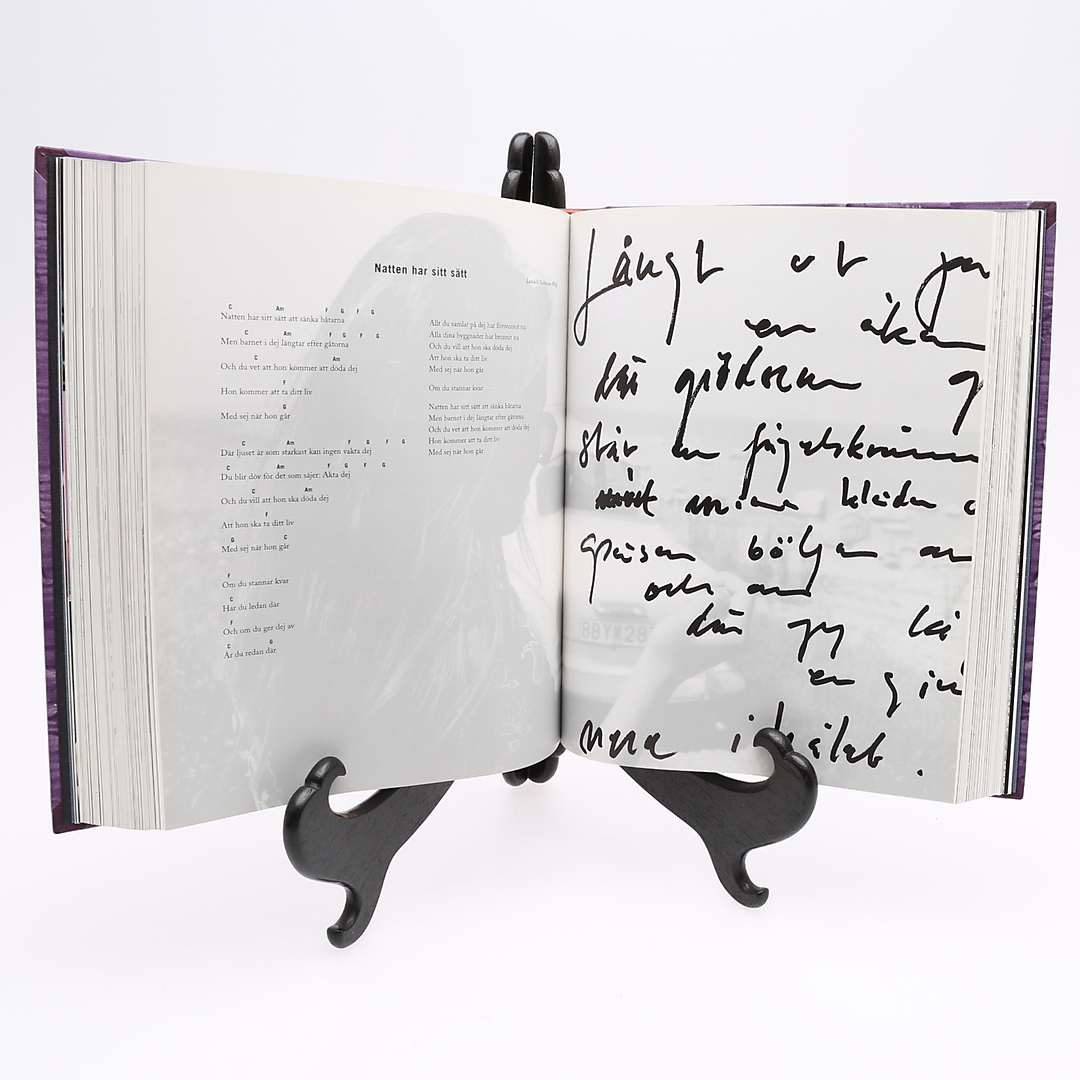 Natten har sitt sätt
C Am F G F G
Natten har sitt sätt att sänka båtarna
C Am F G F G
Men barnet i dej längtar efter gåtorna
C Am
Och du vet att hon kommer att döda dej
F
Hon kommer att ta ditt liv
G
Med sej när hon går
C Am F G F G
Där ljuset är som starkast kan ingen vakta dej
C Am F G F G
Du blir döv för det som säjer: Akta dej
C Am
Och du vill att hon ska döda dej
F
Att hon ska ta ditt liv
G C
Med sej när hon går
F
Om du stannar kvar
C
Har du ledan där
F
Och om du ger dej av
C G
Är du redan där
Allt du samlat på dej har försvunnit nu
Alla dina byggnader har brunnit nu
Och du vill att hon ska döda dej
Att hon ska ta ditt liv
Med sej när hon går
Om du stannar kvar ...
Natten har sitt sätt att sänka båtarna
Men barnet i dej längtar efter gåtorna
Och du vet att hon kommer att döda dej
Hon kommer att ta ditt liv
Med sej när hon går
långt ut
en
där grödorna
står en fågelskrämm
mina kläder
gräsen böljar
och
där jag
en
mera ihålab.
BBY 28